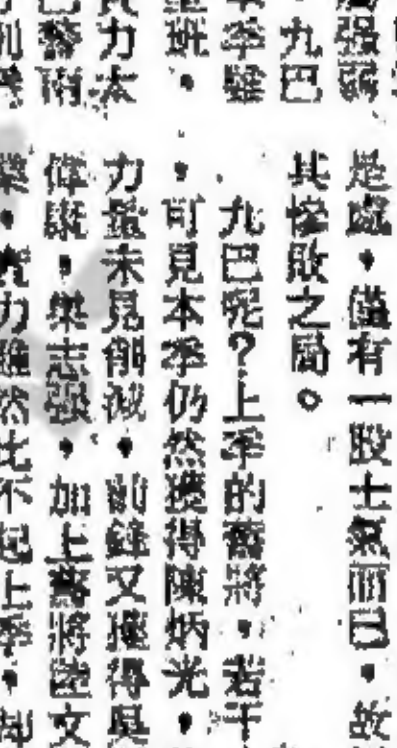 強弱
九巴
季
班，
力太
是處，僅有一股士氣而已，故
其慘敗之局。
九巴呢？上季的舊將，若干
，可見本季仍然獲得陳炳光，
力量未見削減，前鋒又獲得吳
偉康，樂志強，加上舊將陸文
力雖然比不起上季，